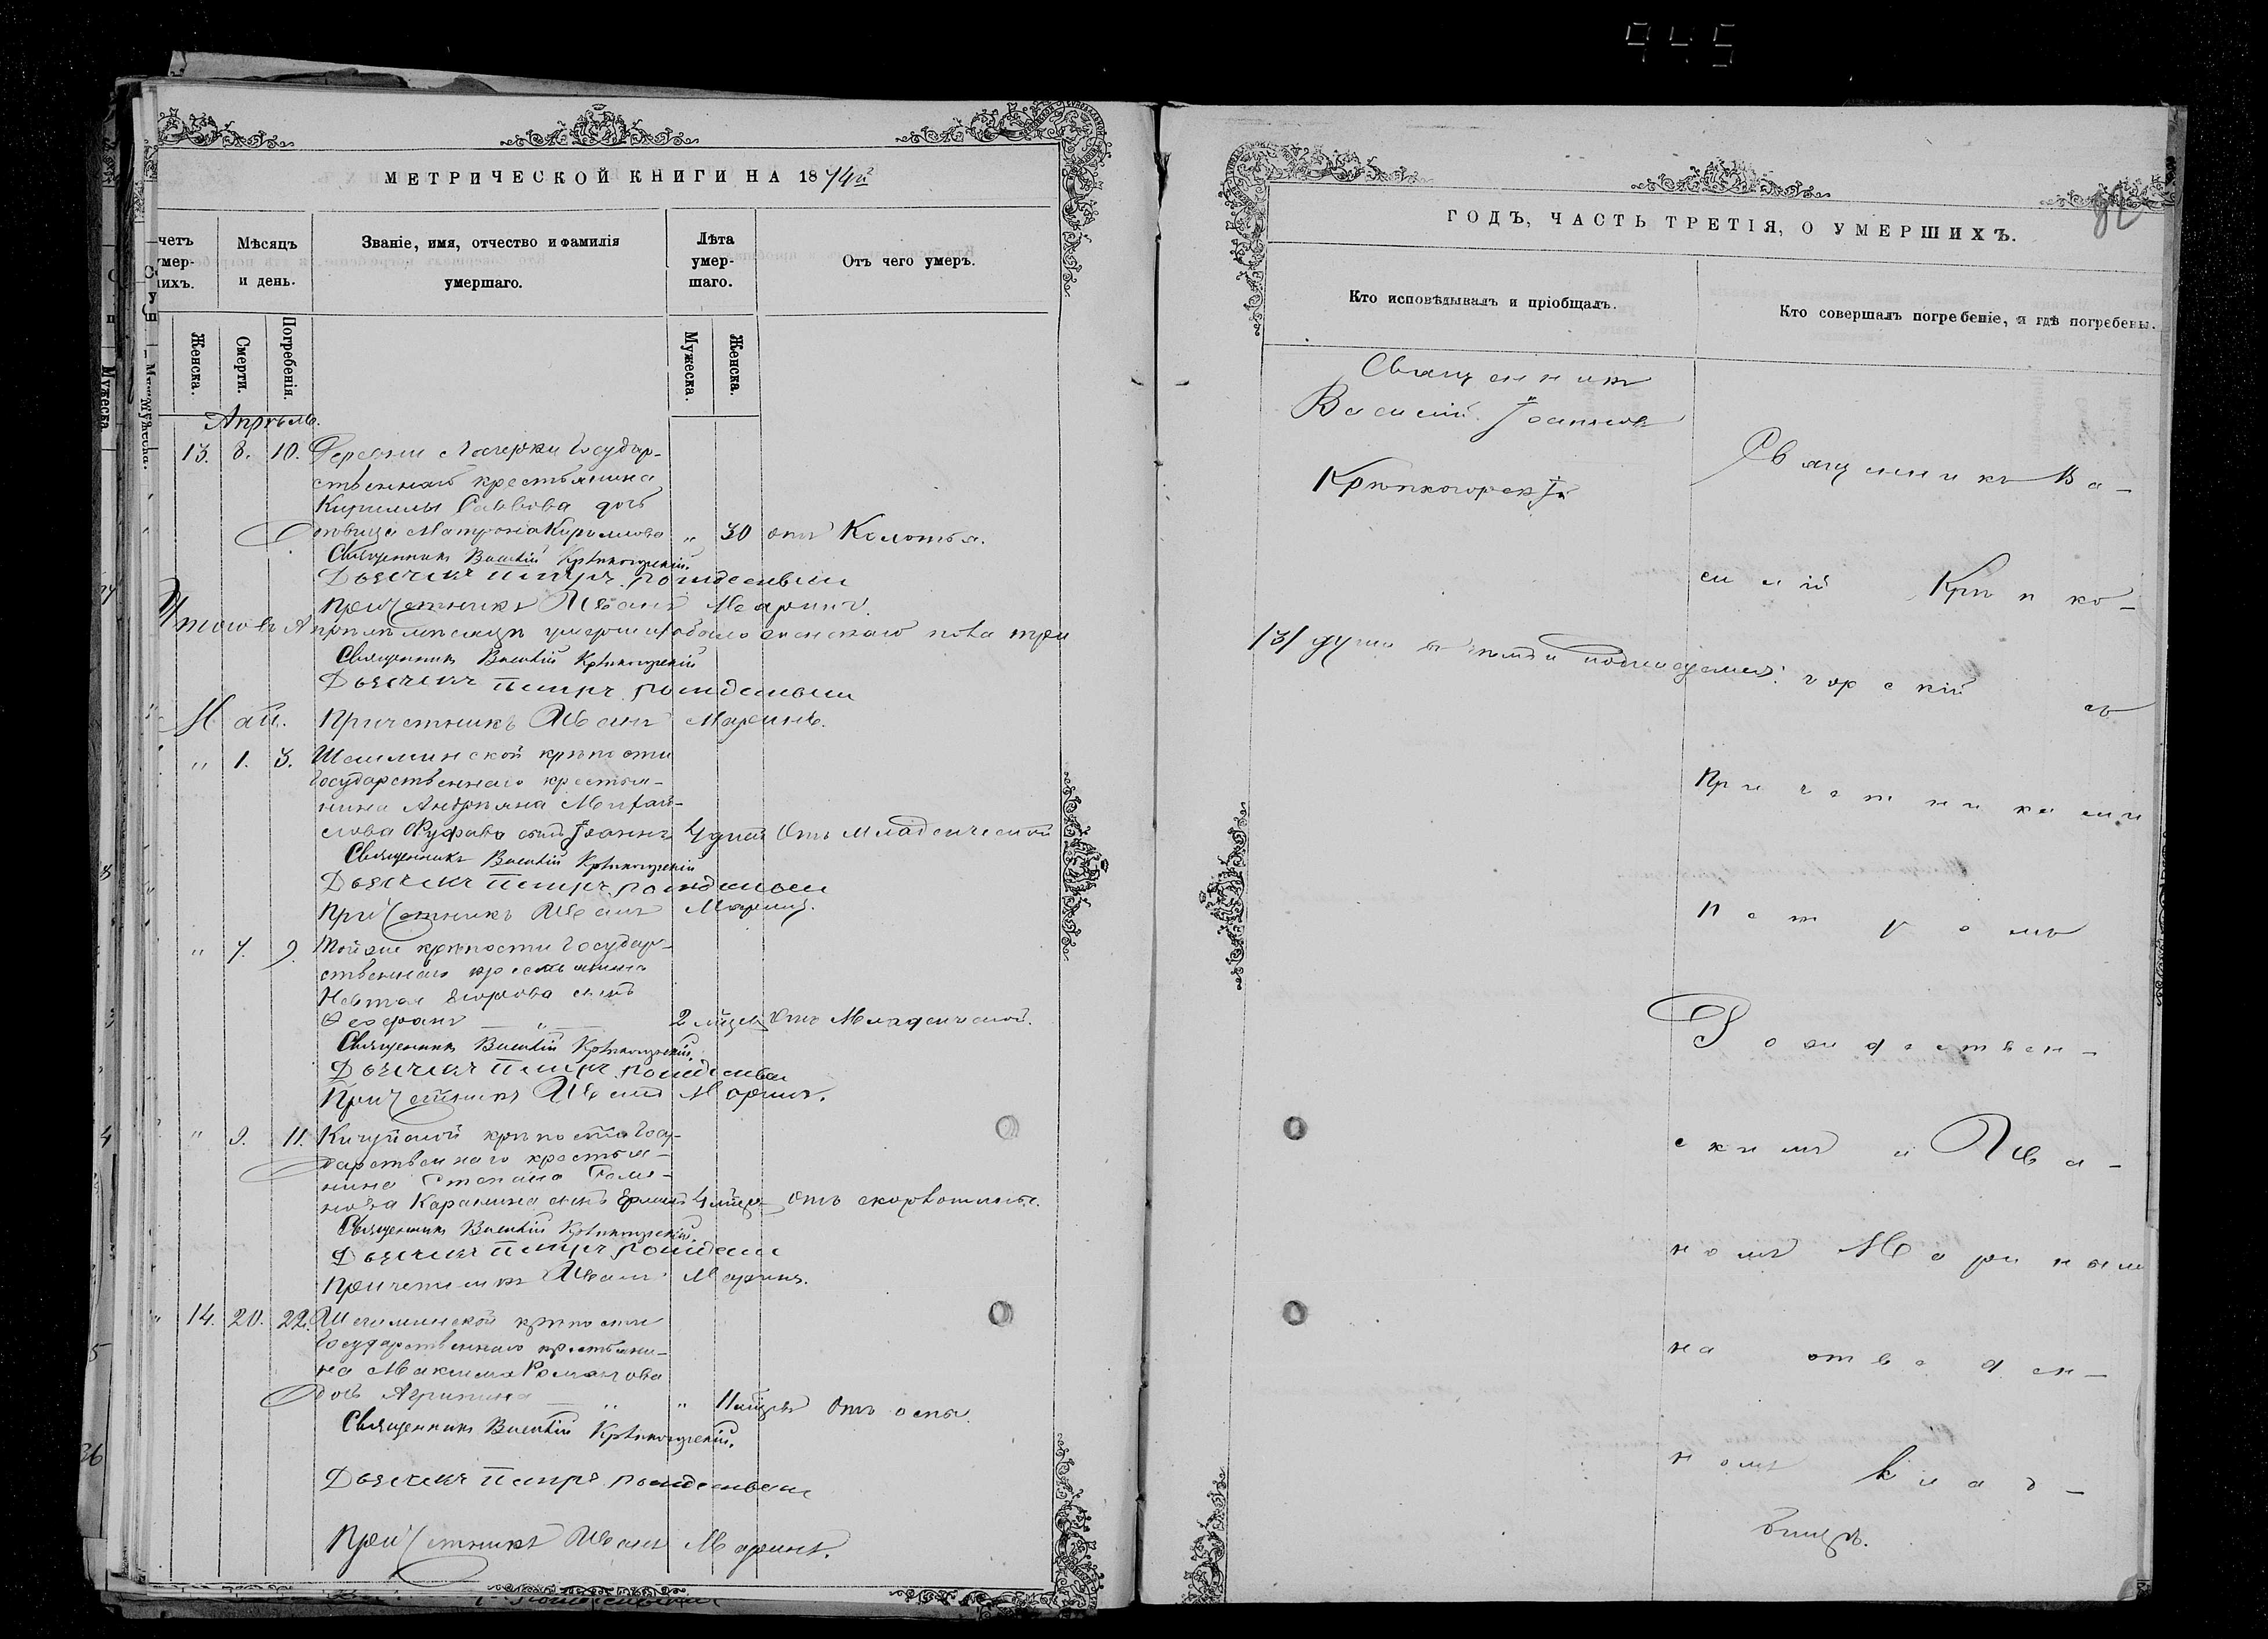 945
МЕТРИЧЕСКОЙ КНИГИ НА 1874й
четъ умер- ихъ.
Мѣсяцъ и день.
Званіе, имя, отчество и фамилія умершаго.
Лѣта умер- шаго.
Отъ чего умеръ.
Женска.
Смерти.
Погребенія.
Мужеска.
Женска.
Апрѣль.
13. 8. 10. Деревни Государ-
ственнаго крестьянина
Кириллы Саввова дочь
дѣвица Матрона Кириллова „ 30 отъ Колотья.
Священникъ Василій Крѣпкогорскій.
Дьячекъ Петръ Рождественскій
Причетникъ Иванъ Маринъ.
Итого въ Апрѣлѣ мѣсяцѣ умерши обоего женскаго пола три
Священникъ Василій Крѣпкогорскій
Дьячекъ Петръ Рождественскій
Май. Причетникъ Иванъ Маринъ.
„ 1. 3. Шешминской крѣпости
Государственнаго крестья-
нина Андріяна Михай-
лова сынъ Іоаннъ 4 дней Отъ младенческой
Священникъ Василій Крѣпкогорскій
Дьячекъ Петръ Рождественскій
Причетникъ Иванъ Маринъ.
„ 7. 9. Той же крѣпости Государ-
ственнаго крестьянина
Егорова сынъ
Ѳеофанъ — „ — 2 мѣсяц. Отъ Младенческой.
Священникъ Василій Крѣпкогорскій.
Дьячекъ Петръ Рождественскій
Причетникъ Иванъ Маринъ.
„ 9. 11. Кичуйской крѣпости Госу-
дарственнаго крестья-
нина Степана
Карамина сынъ 4 мѣсяц. отъ скарлатины.
Священникъ Василій Крѣпкогорскій.
Дьячекъ Петръ Рождествен
Причетникъ Иванъ Маринъ.
„ 14. 20. 22. Шешминской крѣпости
Государственнаго крестьяни-
на Максима Романова
дочь Агрипина — „ „ 11 мѣсяц. Отъ оспы.
Священникъ Василій Крѣпкогорскій.
Дьячекъ Петръ Рождественскій
Причетникъ Иванъ Маринъ.
ГОДЪ, ЧАСТЬ ТРЕТІЯ, О УМЕРШИХЪ.
Кто исповѣдывалъ и пріобщалъ.
Кто совершалъ погребеніе, и гдѣ погребены.
Священникъ
Василій Іоанновъ
Крѣпкогорскій
/3/ душъ въ чемъ и подписуемся:
Священникъ Ва-
силій Крѣпко-
горскій съ
Причетниками
Петромъ
Рождествен-
скимъ и Ива-
номъ Маринымъ
на отведен-
номъ клад-
бищѣ.